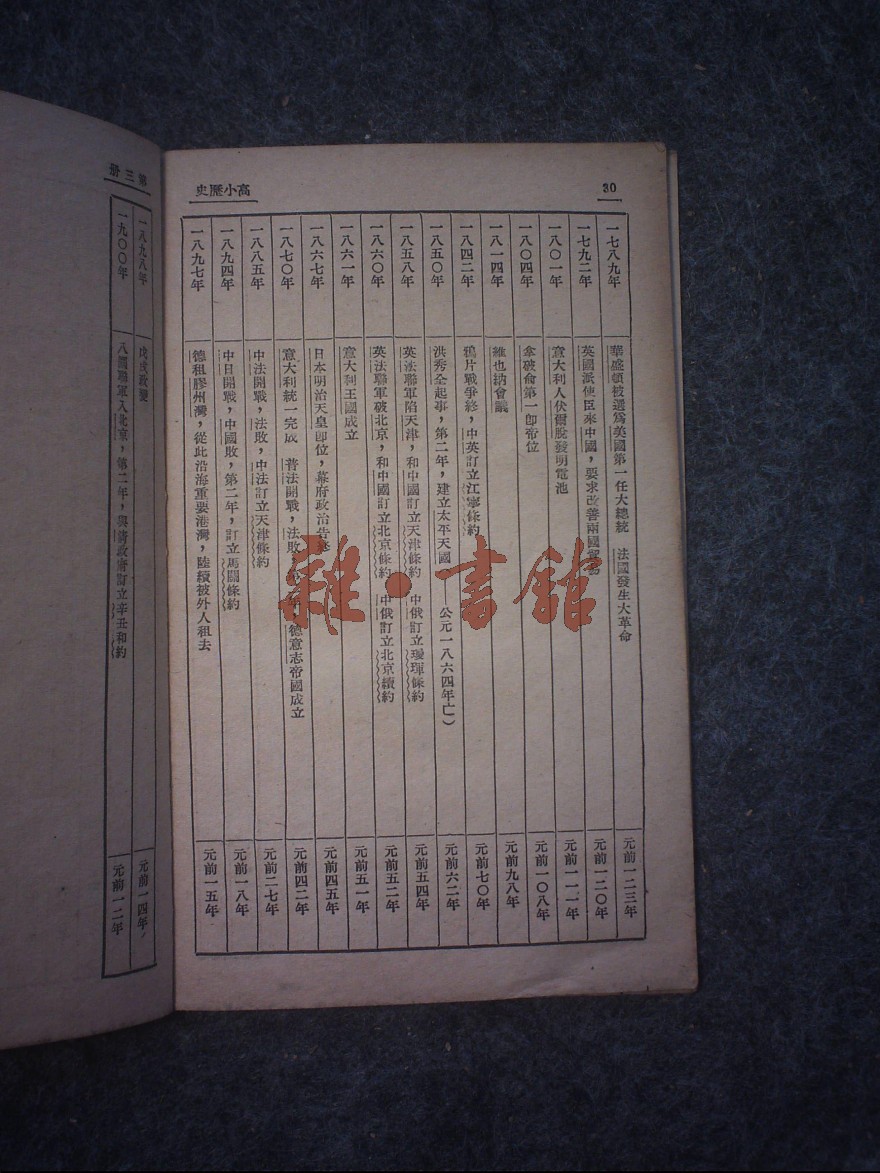 高小歷史
30
一七八九年 華盛頓被選爲美國第一任大總統 法國發生大革命 元前一二三年
一七九二年 英國派使臣來中國，要求改善兩國 元前一二〇年
一八〇一年 意大利人伏爾脫發明電池 元前一一一年
一八〇四年 拿破侖第一卽帝位 元前一〇八年
一八一四年 維也納會議 元前九八年
一八四二年 鴉片戰爭終，中英訂立江寧條約 元前七〇年
一八五〇年 洪秀全起事，第二年，建立太平天國 公元一八六四年亡） 元前六二年
一八五八年 英法聯軍陷天津，和中國訂立天津條約 中俄訂立璦琿條約 元前五四年
一八六〇年 英法聯軍破北京，和中國訂立北京條約 中俄訂立北京續約 元前五二年
一八六一年 意大利王國成立 元前五一年
一八六七年 日本明治天皇卽位，幕府政治告終 元前四五年
一八七〇年 意大利統一完成 普法開戰，法敗，第二年，德意志帝國成立 元前四二年
一八八五年 中法開戰，法敗，中法訂立天津條約 元前二七年
一八九四年 中日開戰，中國敗，第二年，訂立馬關條約 元前一八年
一八九七年 德租膠州灣，從此沿海重要港灣，陸續被外人租去 元前一五年
第三册
一八九八年 戊戌政變 元前一四年
一九〇〇年 八國聯軍入北京，第二年，與淸政府訂立辛丑和約 元前一二年
雜·書館